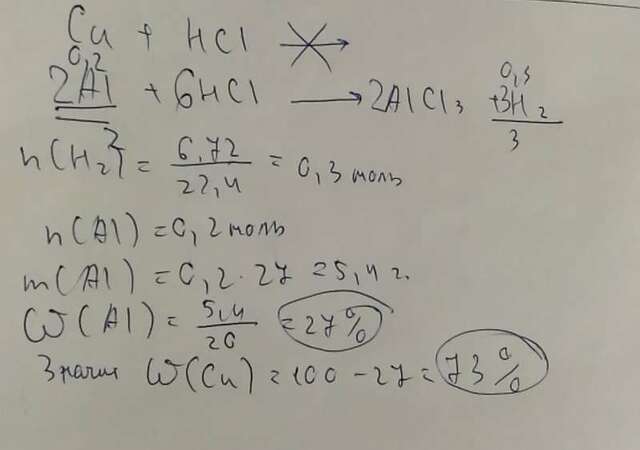 Cu + HCl
0,2 0,3
2Al + 6HCl → 2AlCl3 + 3H2
2 3
n(H2) = 6,72/22,4 = 0,3 моль
n(Al) = 0,2 моль
m(Al) = 0,2 · 27 = 5,4 г.
ω(Al) = 5,4/20 = 27%
Значит ω(Cu) = 100 - 27 = 73%